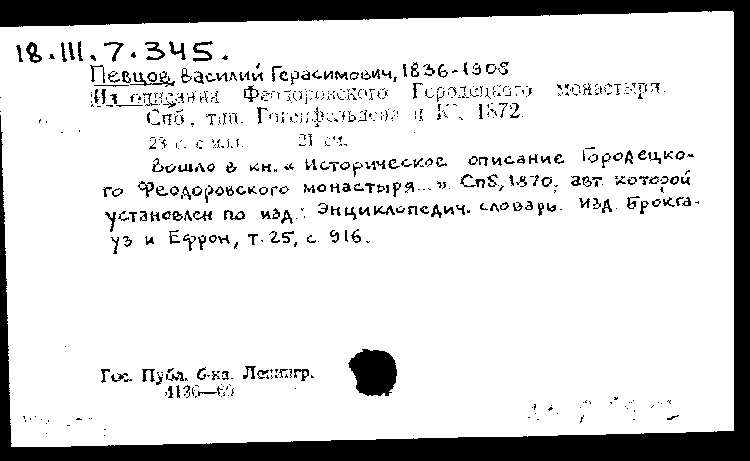 18.III.7.345.
Певцов, Василий Герасимович, 1836-1908
Из описания Феодоровского Городецкого монастыря.
Спб, тип. Гогенфельдена и К°, 1872.
23 с. с илл. 21 см.
Вошло в кн. « Историческое описание Городецко-
го Феодоровского монастыря...». Спб, 1870, авт. которой
установлен по изд.: Энциклопедич. словарь. изд. Брокга-
уз и Ефрон, т. 25, с. 916.
Гос. Публ. б-ка. Ленингр.
4136—69